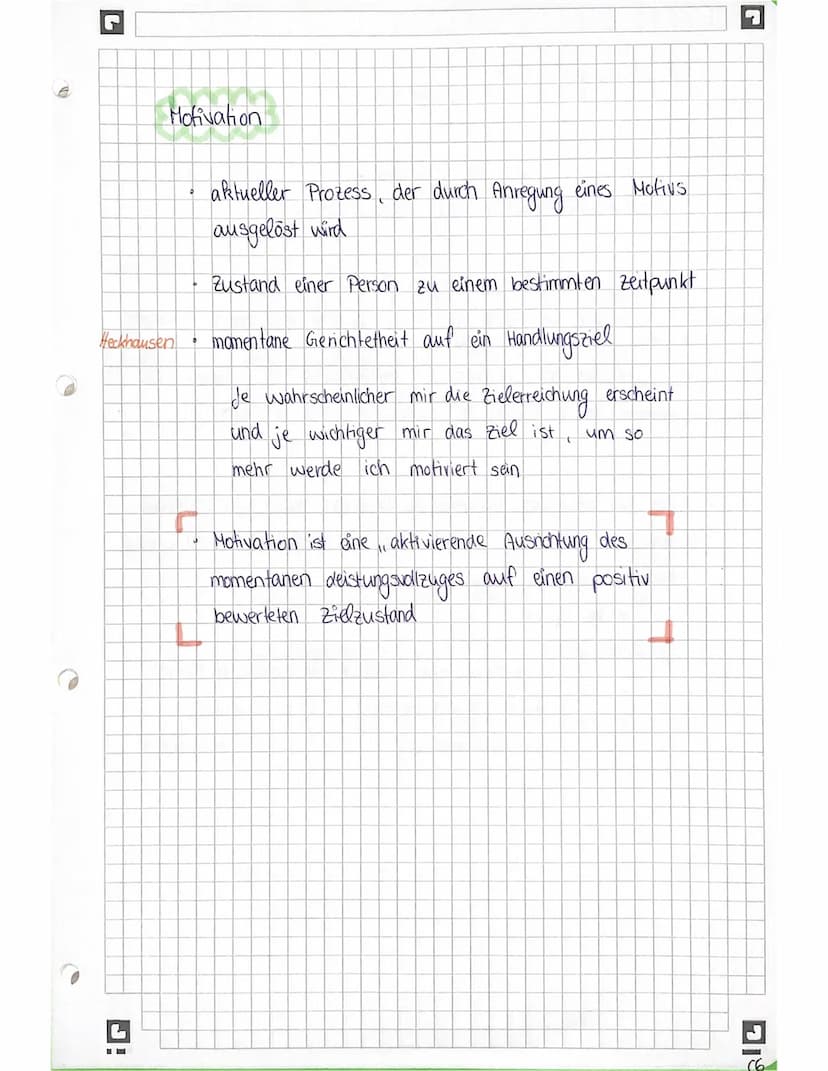 Motivation
• aktueller Prozess, der durch Anregung eines Motivs
ausgelöst wird
• Zustand einer Person zu einem bestimmten Zeitpunkt
Heckhausen • momentane Gerichtetheit auf ein Handlungsziel
Je wahrscheinlicher mir die Zielerreichung erscheint
und je wichtiger mir das Ziel ist, um so
mehr werde ich motiviert sein
• Motivation ist eine „aktivierende Ausrichtung des
momentanen Leistungsvollzuges auf einen positiv
bewerteten Zielzustand